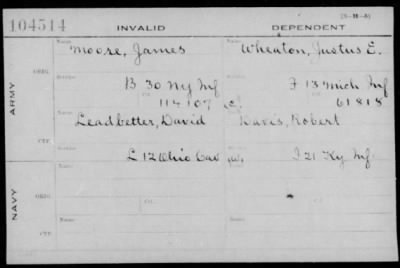 104514
INVALID
DEPENDENT
Name: Moose, James
Name: Wheaton, Justus E.
ARMY
ORIG.
B 30 NY Inf
F 13 Mich Inf
114107
C
61818
CTF.
Leadbetter, David
Davis, Robert
L 12 Ohio Cav
I 21 Ky Inf
NAVY
ORIG.
Name
Name
CTF.